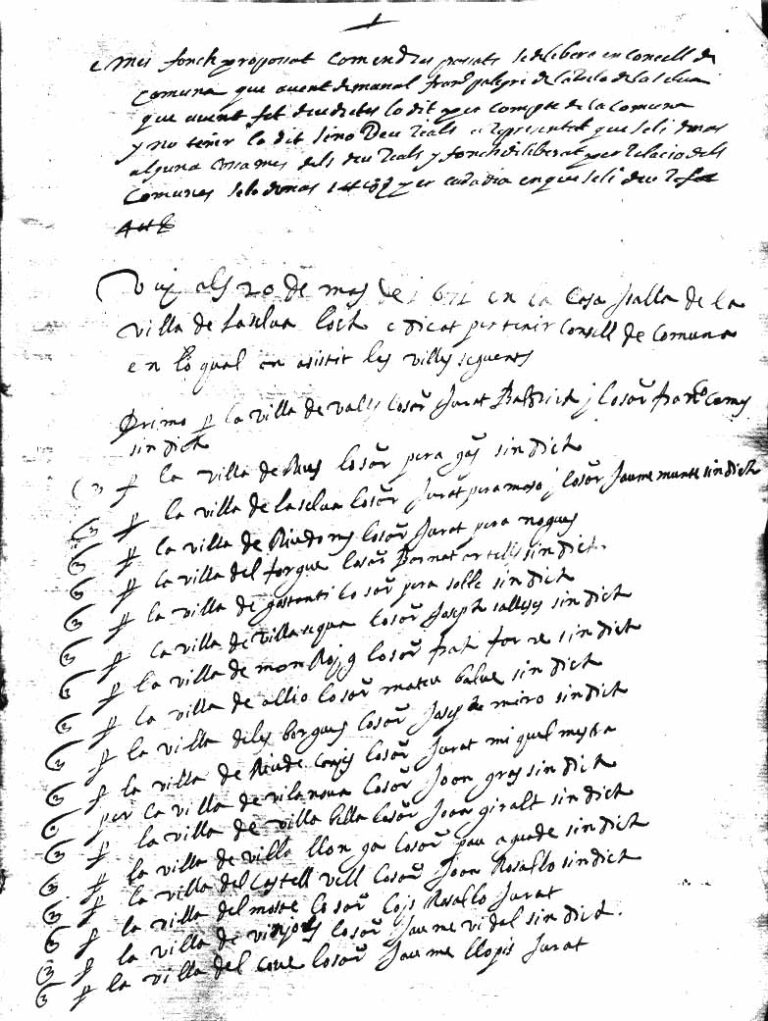 e mes fonch proposat com en dies passats se delibera en consell de
Comuna que avent demanat fran.ch de la de la selua
que avent fet dou dietes lo dit per compte de la comuna
y no tenir lo dit sino Deu reals e representat que seli donas
alguna cosa mes dels deu reals y fonch deliberat per relacio dels
Comunes selo donas per cada dia en que seli deu
Vuy als 20 de mag de 1671 en la Casa salla de la
villa de laselua loch dicat per tenir Consell de Comuna
en lo qual an asistit les villes seguents
Primo p la villa de valls losor Jurat Baptista y losor fran.co comes
sindich
p la villa de Reus losor pera gay sindich
p la villa de laselua losor Jurat pera maso y losor Jaume munte sindich
p la villa de Riudoms losor Jurat pera nogues
p la villa del forque losor Bernat ortells sindich
p la villa de gostanti losor pera solle sindich
p la villa de villasequa losor Joseph salleses sindich
p la villa de mon Roig losor frat sindich
p la villa de allio losor mateu balue sindich
p la villa deles borgues losor Joseph miro sindich
p la villa de Riude Canyes losor Jurat miquel mestra
per la villa de vilanoua losor Joan gras sindich
p la villa de villa bella losor Joan giralt sindich
p la villa de villa llonga losor pau aguade sindich
p la villa del Castell vell losor Joan Rosallo sindich
p la villa del losor Rosallo Jurat
p la villa de vinyols losor Jaume vidal sindich
p la villa del coue losor Jaume llopis Jurat